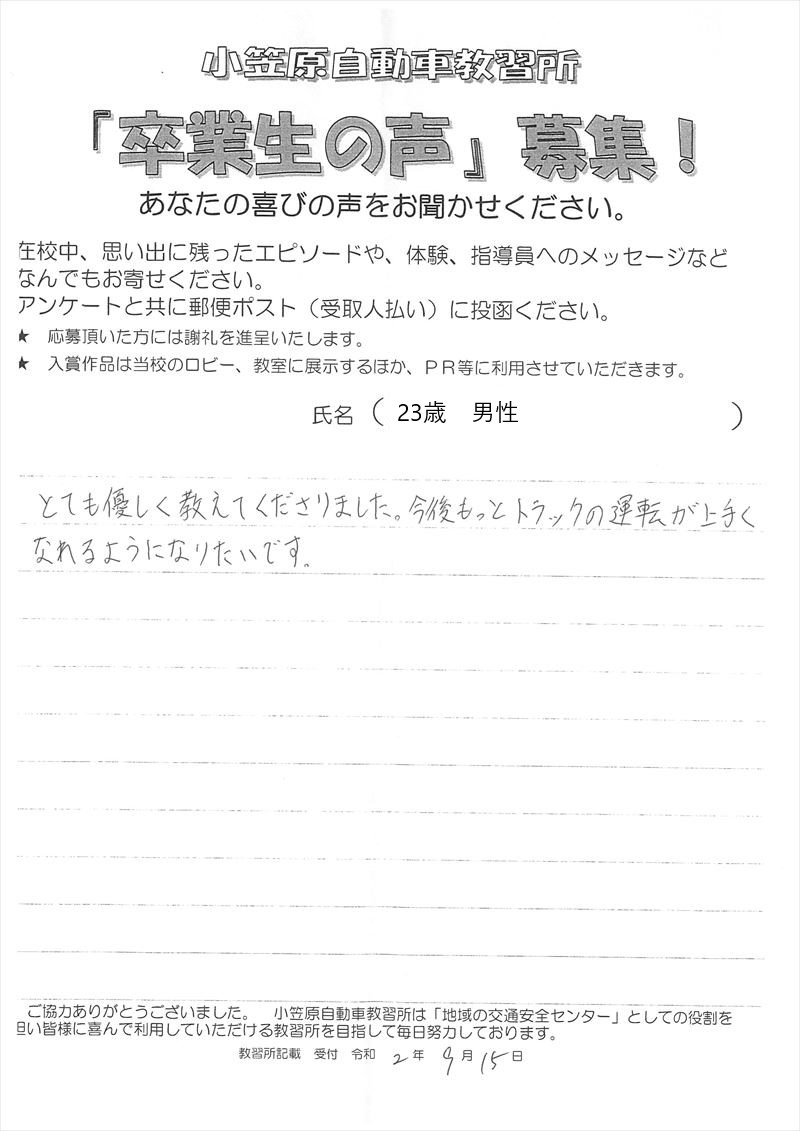 小笠原自動車教習所
『卒業生の声』募集！
あなたの喜びの声をお聞かせください。
在校中、思い出に残ったエピソードや、体験、指導員へのメッセージなど
なんでもお寄せください。
アンケートと共に郵便ポスト（受取人払い）に投函ください。
★ 応募頂いた方には謝礼を進呈いたします。
★ 入賞作品は当校のロビー、教室に展示するほか、ＰＲ等に利用させていただきます。
氏名（ 23歳 男性 ）
とても優しく教えてくださりました。今後もっとトラックの運転が上手く
なれるようになりたいです。
ご協力ありがとうございました。 小笠原自動車教習所は「地域の交通安全センター」としての役割を
担い皆様に喜んで利用していただける教習所を目指して毎日努力しております。
教習所記載 受付 令和 2年 9月 15日